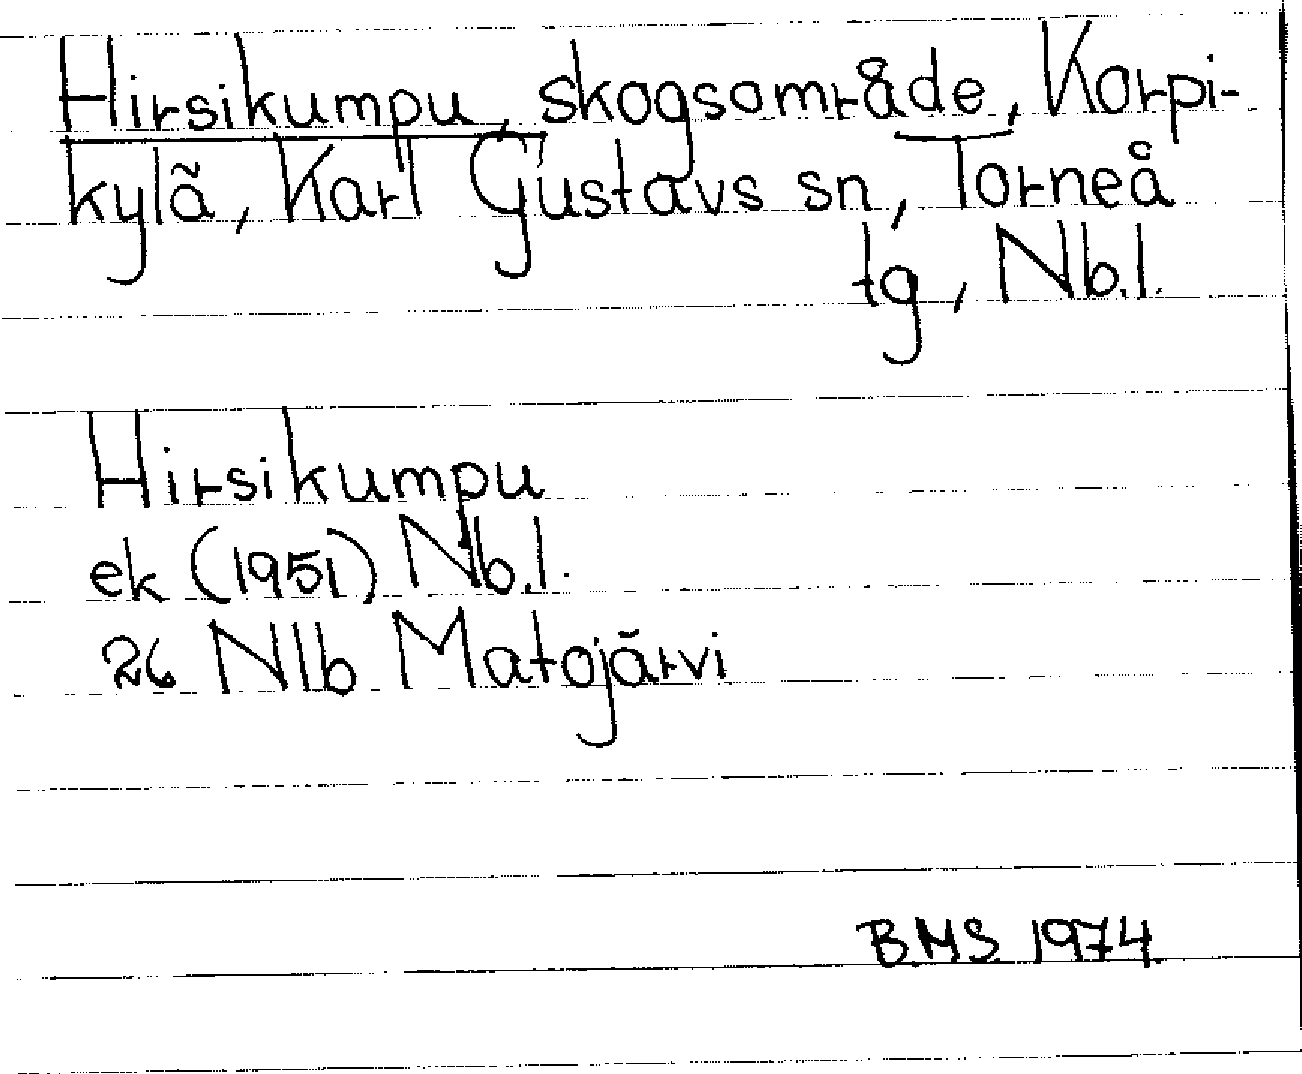 Hirsikumpu, skogsområde, Korpi-
kylä, Karl Gustavs sn, Torneå
tg, Nb.l.
Hirsikumpu
ek (1951) Nb.l.
26 Nlb Matojärvi
B.M.S. 1974.